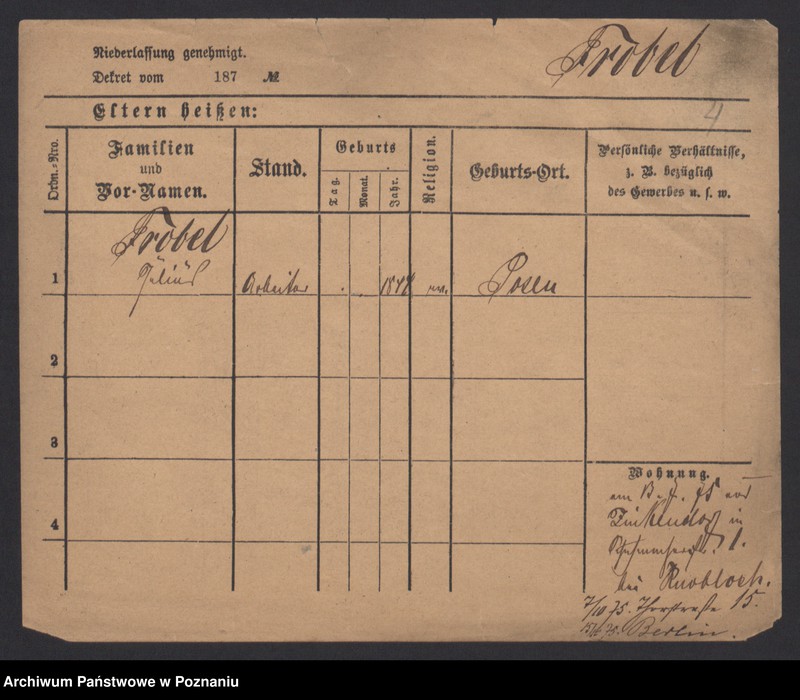 Niederlassung genehmigt.
Dekret vom 187 №
Fröbel
4
Eltern heißen:
Ordn.-Nro.
Familien
und
Vor-Namen.
Stand.
Geburts
Tag.
Monat.
Jahr.
Religion.
Geburts-Ort.
Persönliche Verhältnisse,
z. B. bezüglich
des Gewerbes u. s. w.
Fröbel
1 Julius Arbeiter ev. Posen
2
3
4
Wohnung.
am 75 aus
in
1.
bei Knobloch.
7/10 75. Thorstraße 15.
75. Berlin.
Archiwum Państwowe w Poznaniu